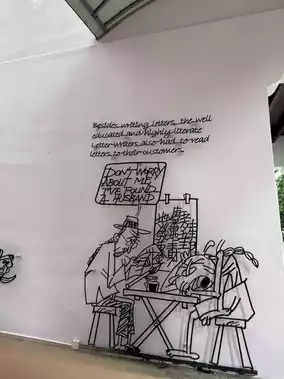 Besides writing letters, the well
educated and highly literate
Letter-writers also had to read
letters to their customers.
DON'T WORRY
ABOUT ME,
I'VE FOUND
A HUSBAND